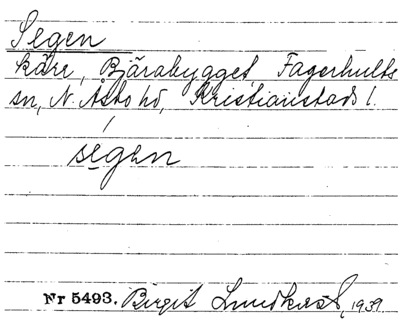 Segen
kärr, Bjärabygget, Fagerhults
sn, N. Åsbo hd, Kristianstads l.
segen
Nr 5493. Birgit Lundkvist, 1939